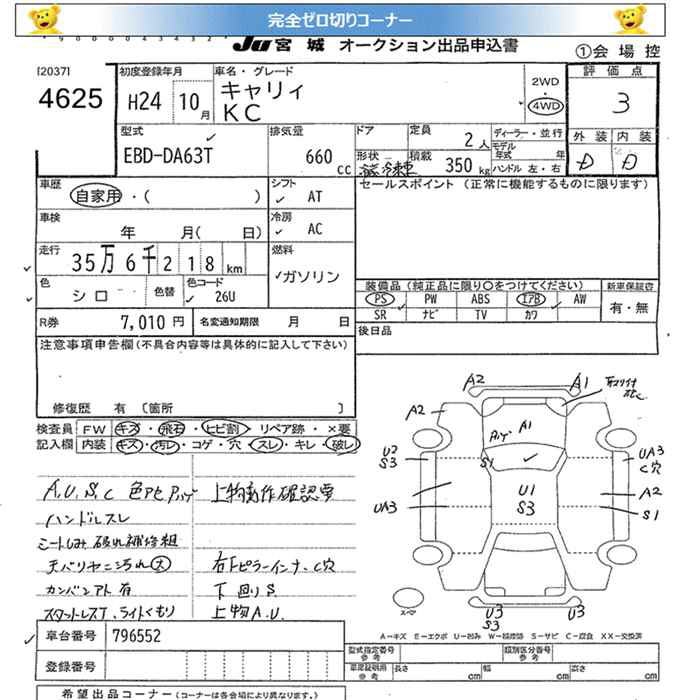 完全ゼロ切りコーナー
9 0 0 0 0 4 3 4 3 2
JU 宮城 オークション出品申込書 ①会場控
[2037]
4625
初度登録年月
H24 10月
車名・グレード
キャリィ
KC
2WD
・
4WD
評価点
3
型式
EBD-DA63T
排気量
660 CC
ドア
定員
2人
ディーラー・並行
モデル年式 年
形状 積載
350kg
ハンドル 左・右
外装 内装
D D
車歴
自家用・( )
シフト
AT
セールスポイント (正常に機能するものに限ります)
車検
年 月( 日)
冷房
AC
走行
35万6千218km
燃料
ガソリン
色
シロ
色替
色コード
26U
装備品(純正品に限り○をつけてください)
新車保証書
PS PW ABS エアB AW
有・無
SR ナビ TV カワ
R券 7,010円 名変通知期限 月 日
後日品
注意事項申告欄(不具合内容等は具体的に記入して下さい)
修復歴 有〔箇所 〕
検査員 FW キズ・飛石・ヒビ割・リペア跡・×要
記入欄 内装 キズ・汚レ・コゲ・穴・スレ・キレ・破レ
A.U.S.C 色アセ ハゲ 上物動作確認要
ハンドルスレ
シートしみ 破れ補修粗
天バリヤニ汚れ大 右下ピラーインナーC穴
カンバンアト有 下回りS
スタットレスT、ライトくもり 上物A.U.
A2 A1
A2
ハゲ A1
U2
S3
S1
UA3
C穴
UA3
U1
S3
A2
S1
スペア
U3
S3
U3
A－キズ E－エクボ U－凹み W－補修跡 S－サビ C－腐食 XX－交換済
車台番号 796552
型式指定番号
参考
類別区分番号
参考
車庫証明用
参考
長さ cm 幅 cm 高さ cm
登録番号
希望出品コーナー(コーナーは各会場により異なります。)